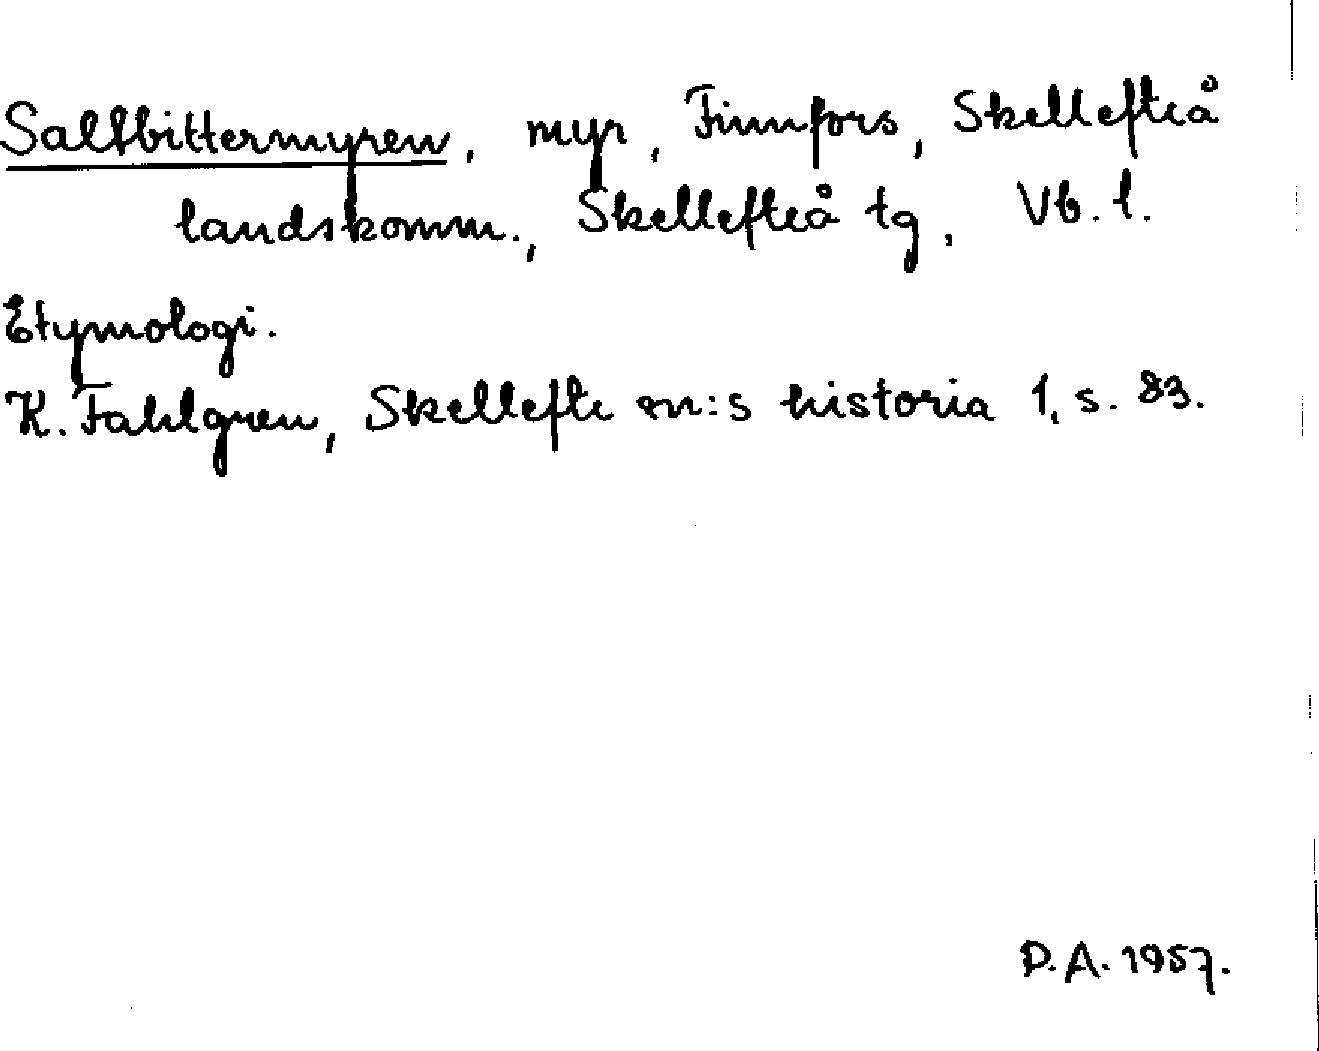 Saltbittermyren, myr, Finnfors, Skellefteå
landskomm., Skellefteå tg, Vb. l.
Etymologi.
K. Fahlgren, Skellefte sn:s historia 1, s. 83.
D.A. 1957.